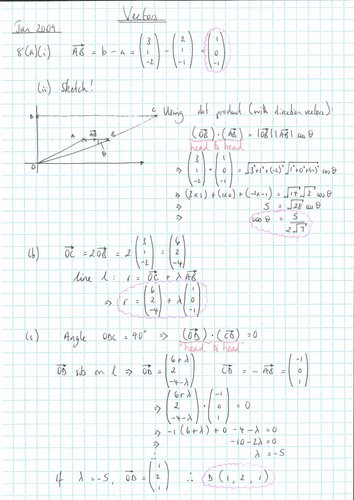 Vectors
Jan 2009
8(a)(i) AB = b - a = (3 1 -2) - (2 1 -1) = (1 0 -1)
(ii) Sketch!
Using dot product (with direction vectors)
(OB)·(AB) = |OB||AB| cos θ
head to head
⇒ (3 1 -2)·(1 0 -1) = √3²+1²+(-2)² √1²+0²+(-1)² cos θ
⇒ (3×1) + (1×0) + (-2×-1) = √14 √2 cos θ
⇒ 5 = √28 cos θ
cos θ = 5/2√7
D C
A AB B
θ
O
(b) OC = 2OB = 2(3 1 -2) = (6 2 -4)
line l: r = OC + λ AB
⇒ r = (6 2 -4) + λ(1 0 -1)
(c) Angle ODC = 90° ⇒ (OD)·(CD) = 0
"head to head"
OD sub on l ⇒ OD = (6+λ 2 -4-λ) CD = -AB = (-1 0 1)
⇒ (6+λ 2 -4-λ)·(-1 0 1) = 0
⇒ -1(6+λ) + 0 -4-λ = 0
⇒ -10-2λ = 0
λ = -5
If λ = -5, OD = (1 2 1) ∴ D(1, 2, 1)